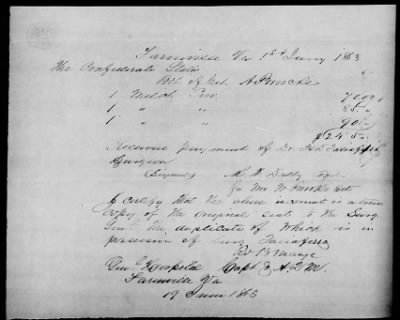 Farmville Va 1st Juny 1863
The Confederate States
Bot of Est A Fowlkes
1 Milch Cow 70 00
1 " " 85
1 " " 90
$245
Received payment of Dr
Surgeon
(Signed)
for Mrs
I certify that the above account is a true
copy of the original sent to the Surg
Genl the duplicate of which is in
possession of Surg Taliaferro
Capt & A.Q.M.
Genl Hospital
Farmville Va
19 June 1863